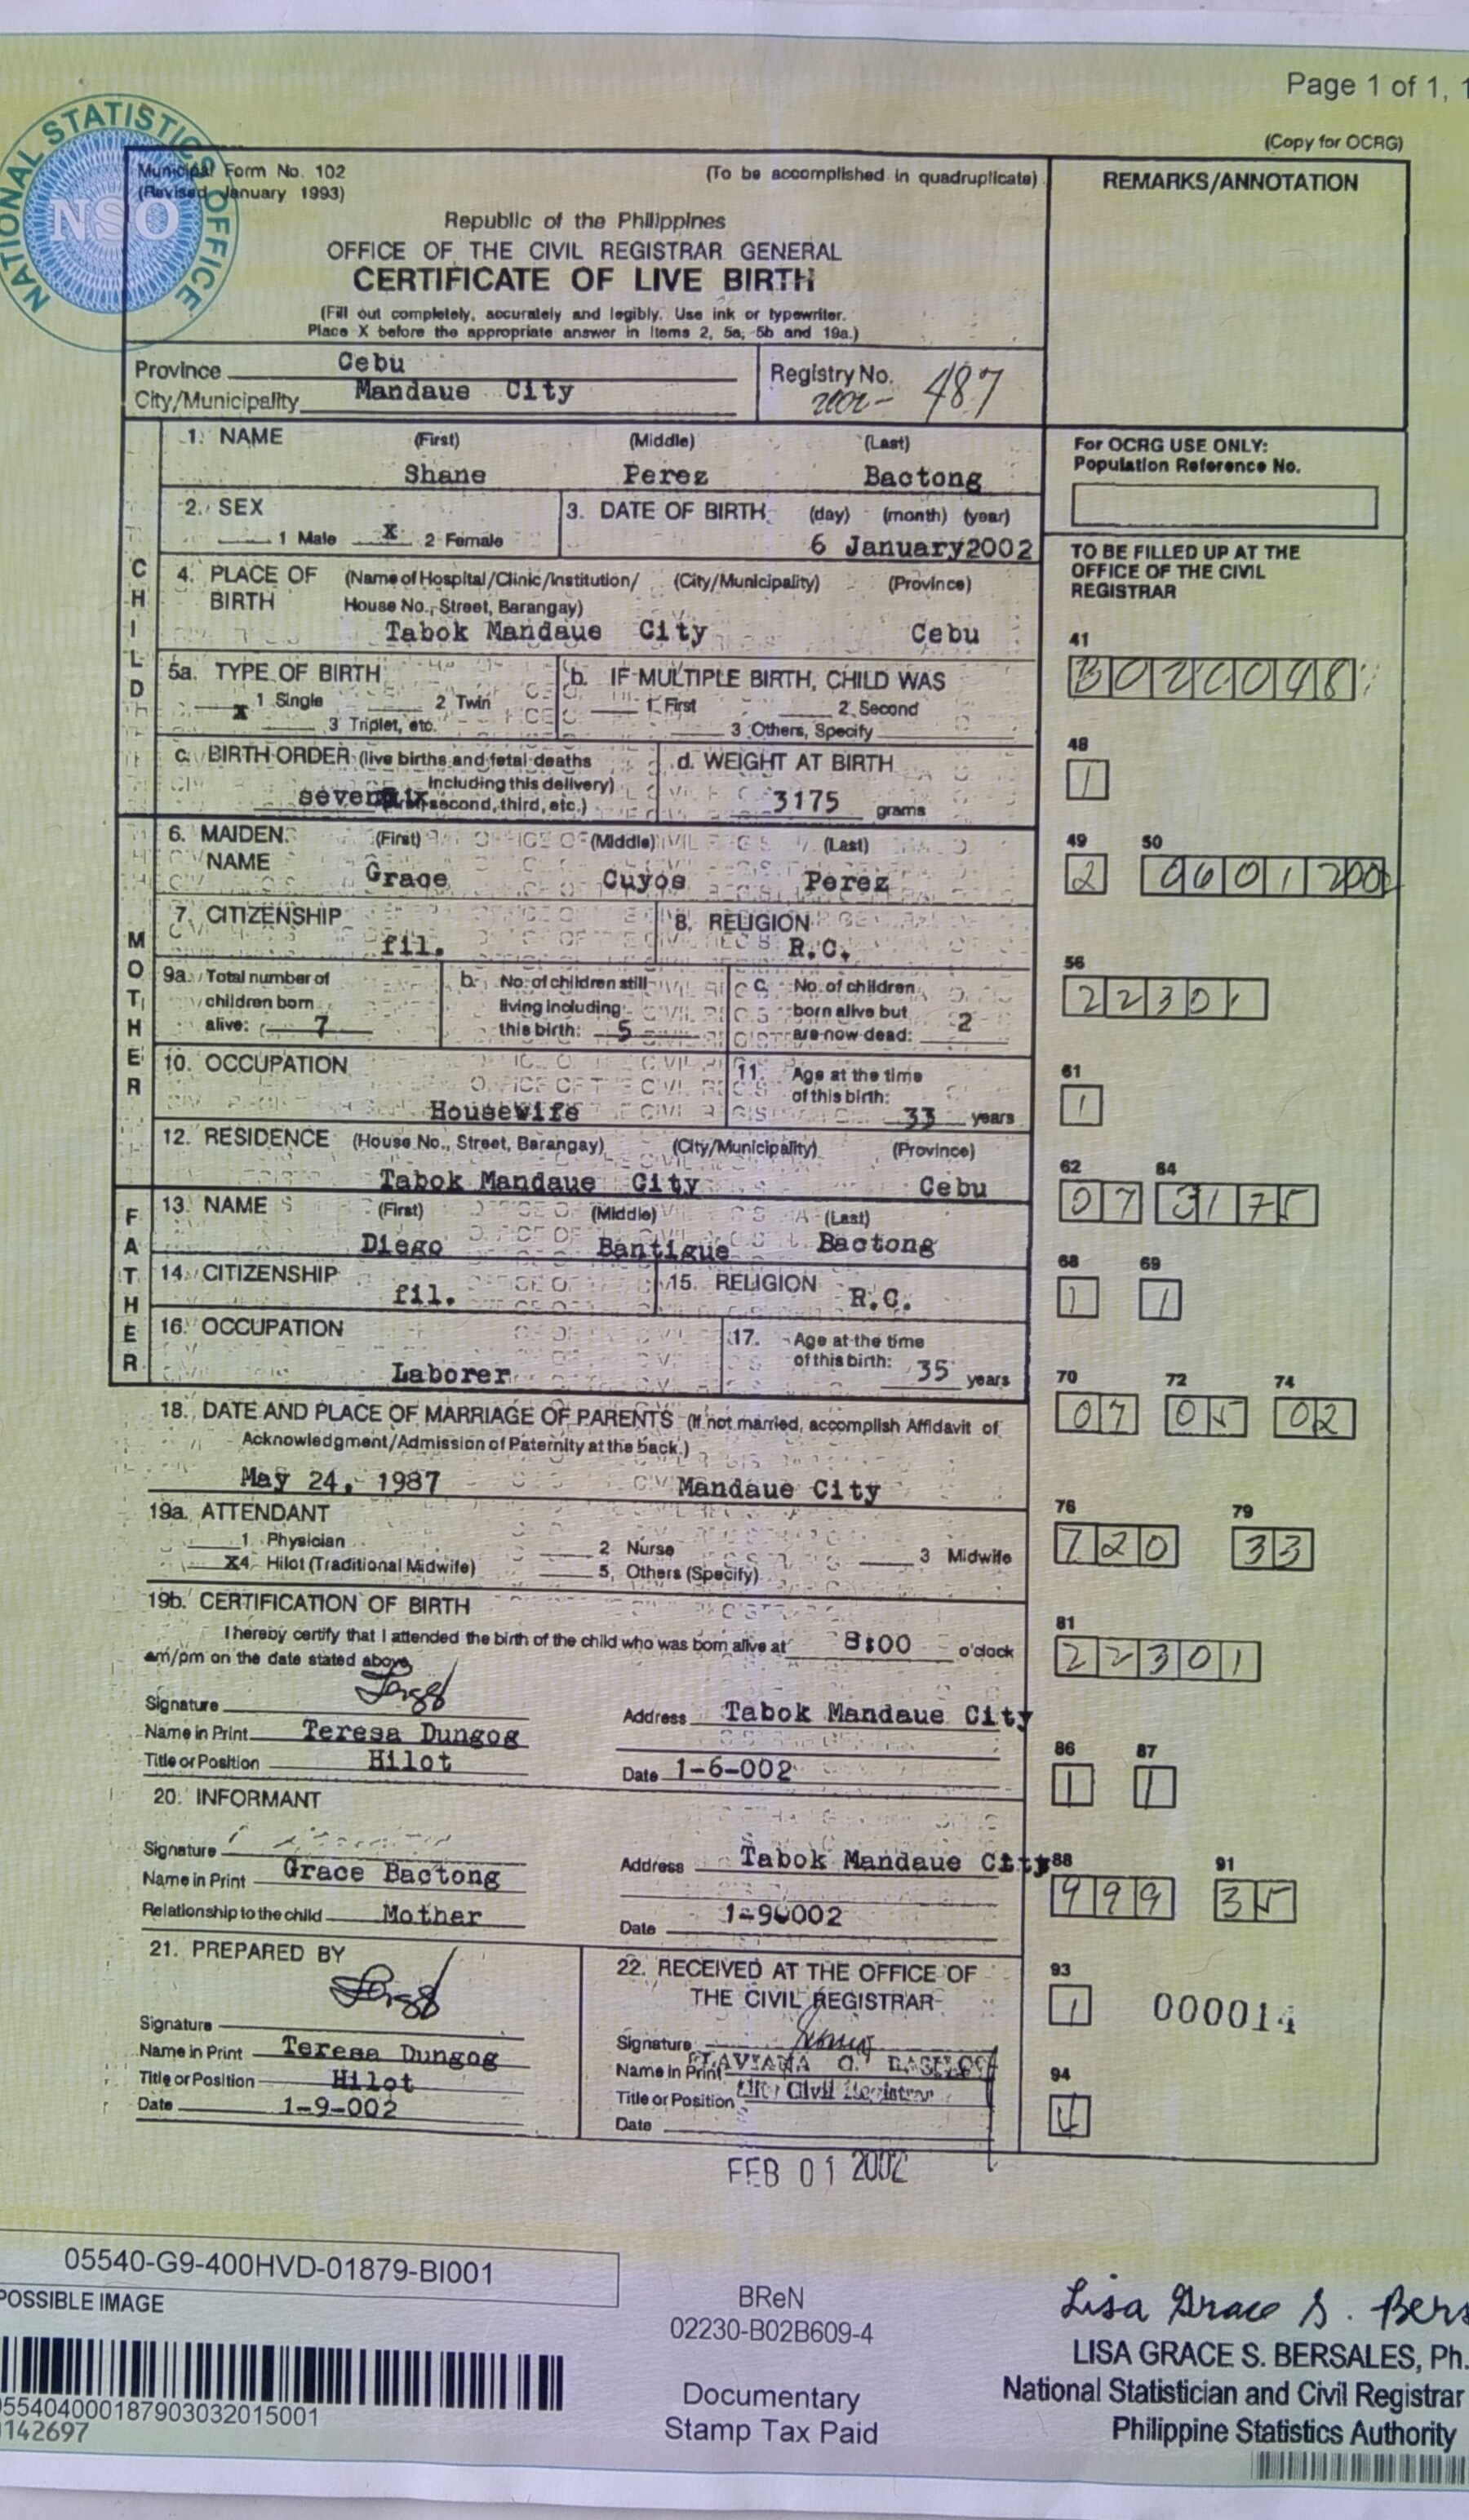 Page 1 of 1, 1
(Copy for OCRG)
NATIONAL STATISTICS OFFICE
NSO
Municipal Form No. 102
(Revised January 1993)
(To be accomplished in quadruplicate)
Republic of the Philippines
OFFICE OF THE CIVIL REGISTRAR GENERAL
CERTIFICATE OF LIVE BIRTH
(Fill out completely, accurately and legibly. Use ink or typewriter.
Place X before the appropriate answer in Items 2, 5a, 5b and 19a.)
REMARKS/ANNOTATION
Province Cebu
City/Municipality Mandaue City
Registry No.
2002- 487
CHILD
1. NAME (First) (Middle) (Last)
Shane Perez Bactong
For OCRG USE ONLY:
Population Reference No.
2. SEX
1 Male X 2 Female
3. DATE OF BIRTH (day) (month) (year)
6 January2002
TO BE FILLED UP AT THE
OFFICE OF THE CIVIL
REGISTRAR
4. PLACE OF BIRTH (Name of Hospital/Clinic/Institution/ (City/Municipality) (Province)
House No., Street, Barangay)
Tabok Mandaue City Cebu
41
5a. TYPE OF BIRTH
X 1 Single 2 Twin
3 Triplet, etc.
b. IF MULTIPLE BIRTH, CHILD WAS
1 First 2 Second
3 Others, Specify
48
1
c. BIRTH ORDER (live births and fetal deaths
including this delivery)
second, third, etc.)
d. WEIGHT AT BIRTH
3175 grams
MOTHER
6. MAIDEN NAME (First) (Middle) (Last)
Grace Cuyos Perez
49 50
2 06012002
7. CITIZENSHIP
fil.
8. RELIGION
R.C.
9a. Total number of
children born
alive: 7
b. No. of children still
living including
this birth: 5
c. No. of children
born alive but
are now dead: 2
56
22301
10. OCCUPATION
Housewife
11. Age at the time
of this birth:
33 years
61
1
12. RESIDENCE (House No., Street, Barangay) (City/Municipality) (Province)
Tabok Mandaue City Cebu
62 64
07 3175
FATHER
13. NAME (First) (Middle) (Last)
Diego Bantigue Bactong
14. CITIZENSHIP
fil.
15. RELIGION
R.C.
68 69
1 1
16. OCCUPATION
Laborer
17. Age at the time
of this birth: 35 years
70 72 74
07 05 02
18. DATE AND PLACE OF MARRIAGE OF PARENTS (If not married, accomplish Affidavit of
Acknowledgment/Admission of Paternity at the back.)
May 24, 1987 Mandaue City
19a. ATTENDANT
1 Physician 2 Nurse 3 Midwife
X4 Hilot (Traditional Midwife) 5 Others (Specify)
76 79
720 33
19b. CERTIFICATION OF BIRTH
I hereby certify that I attended the birth of the child who was born alive at 8:00 o'clock
am/pm on the date stated above.
81
22301
Signature
Name in Print Teresa Dungog
Title or Position Hilot
Address Tabok Mandaue City
Date 1-6-002
86 87
1 1
20. INFORMANT
Signature
Name in Print Grace Bactong
Relationship to the child Mother
Address Tabok Mandaue City
Date
88 91
999 35
21. PREPARED BY
Signature
Name in Print Teresa Dungog
Title or Position Hilot
Date 1-9-002
22. RECEIVED AT THE OFFICE OF
THE CIVIL REGISTRAR
Signature
Name in Print
Title or Position City Civil Registrar
Date
FEB 01 2002
93
1 000014
94
05540-G9-400HVD-01879-BI001
POSSIBLE IMAGE
142697
BReN
02230-B02B609-4
Documentary
Stamp Tax Paid
Lisa Grace S. Bers
LISA GRACE S. BERSALES, Ph.
National Statistician and Civil Registrar
Philippine Statistics Authority